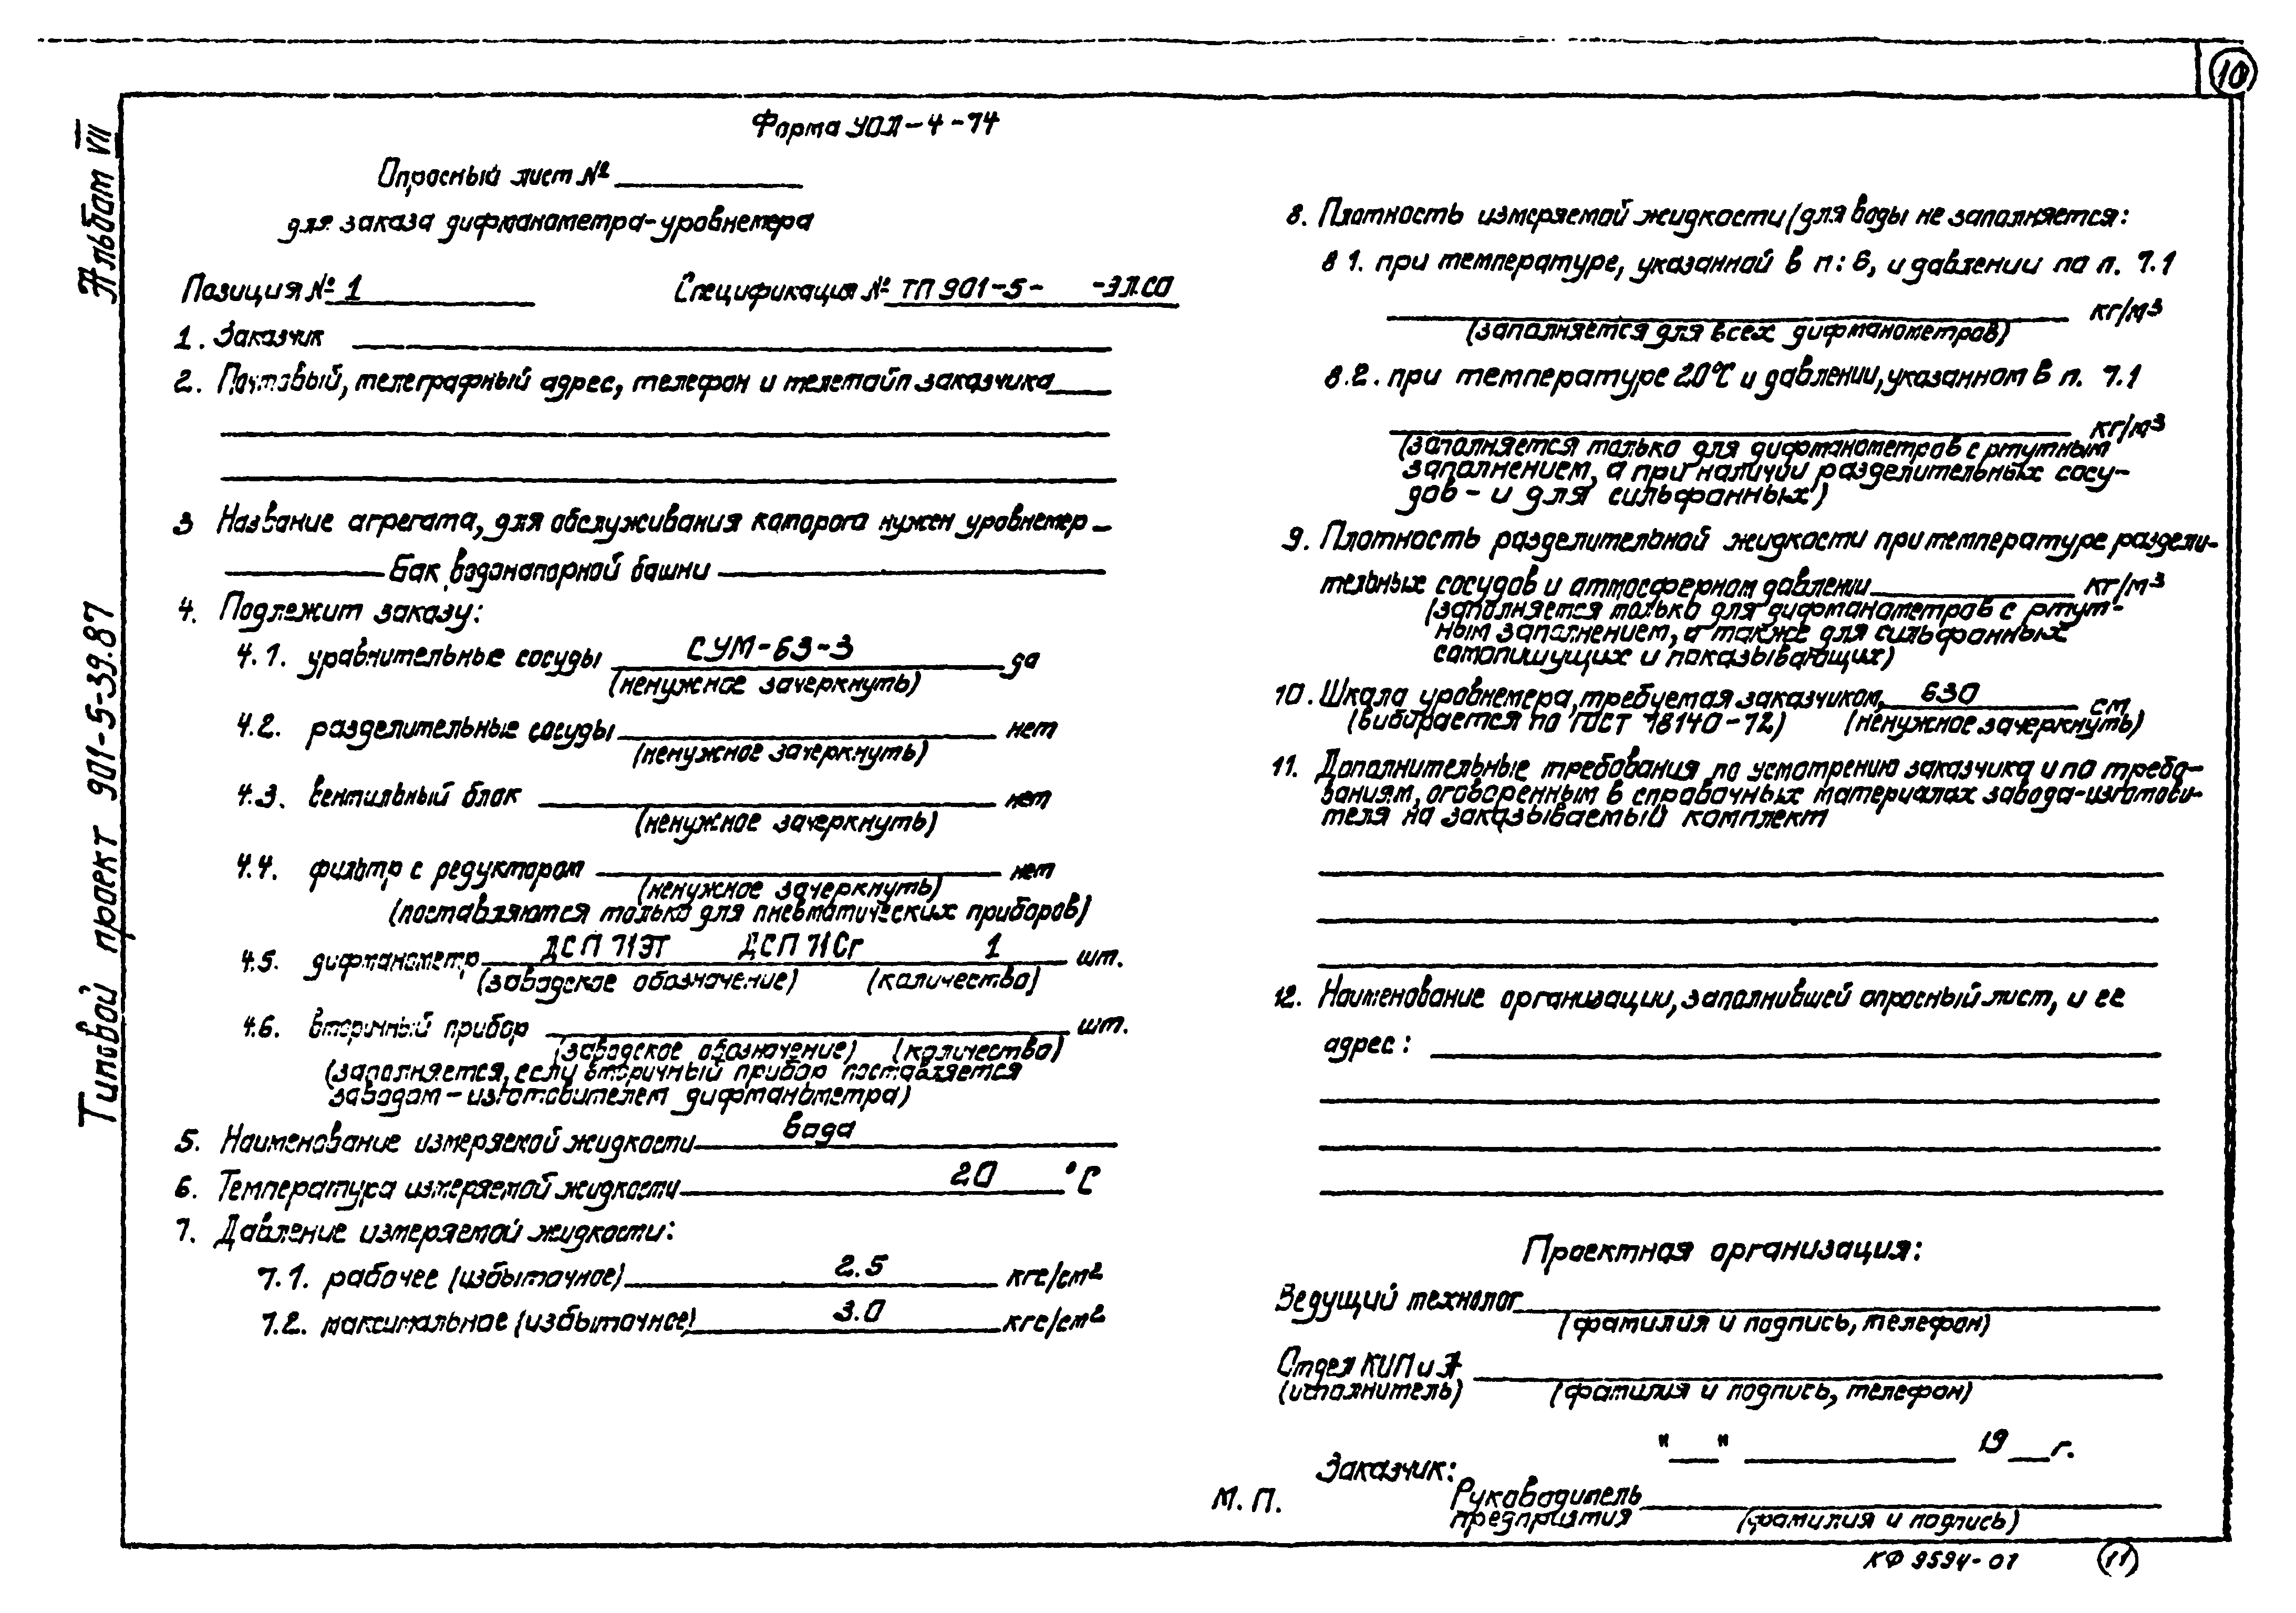 10
Альбом VII
Типовой проект 901-5-39.87
Форма УОЛ-4-74
Опросный лист №
для заказа дифманометра-уровнемера
Позиция № 1 Спецификация № ТП 901-5- -ЭЛ.СО
1. Заказчик
2. Почтовый, телеграфный адрес, телефон и телетайп заказчика
3 Название агрегата, для обслуживания которого нужен уровнемер –
Бак водонапорной башни
4. Подлежит заказу:
4.1. уравнительные сосуды СУМ-63-3 да
(ненужное зачеркнуть)
4.2. разделительные сосуды нет
(ненужное зачеркнуть)
4.3. вентильный блок нет
(ненужное зачеркнуть)
4.4. фильтр с редуктором нет
(ненужное зачеркнуть)
(поставляются только для пневматических приборов)
4.5. дифманометр ДСП 71ЭТ ДСП 71Сг 1 шт.
(заводское обозначение) (количество)
4.6. вторичный прибор шт.
(заводское обозначение) (количество)
(заполняется, если вторичный прибор поставляется
заводом – изготовителем дифманометра)
5. Наименование измеряемой жидкости вода
6. Температура измеряемой жидкости 20 °С
7. Давление измеряемой жидкости:
7.1. рабочее (избыточное) 2.5 кгс/см²
7.2. максимальное (избыточное) 3.0 кгс/см²
8. Плотность измеряемой жидкости (для воды не заполняется:
8 1. при температуре, указанной в п: 6, и давлении по п. 7.1
кг/м³
(заполняется для всех дифманометров)
8.2. при температуре 20°С и давлении, указанном в п. 7.1
кг/м³
(заполняется только для дифманометров с ртутным
заполнением, а при наличии разделительных сосу-
дов – и для сильфонных)
9. Плотность разделительной жидкости при температуре раздели-
тельных сосудов и атмосферном давлении кг/м³
(заполняется только для дифманометров с ртут-
ным заполнением, а также для сильфонных
самопишущих и показывающих)
10. Шкала уровнемера, требуемая заказчиком, 630 см
(выбирается по ГОСТ 18140-72) (ненужное зачеркнуть)
11. Дополнительные требования по усмотрению заказчика и по требо-
ваниям, оговоренным в справочных материалах завода-изготови-
теля на заказываемый комплект
12. Наименование организации, заполнившей опросный лист, и ее
адрес:
Проектная организация:
Ведущий технолог
(фамилия и подпись, телефон)
Отдел КИП и А
(исполнитель) (фамилия и подпись, телефон)
"__" 19 __г.
Заказчик:
М. П. Руководитель
предприятия (фамилия и подпись)
КФ 9594-01 11